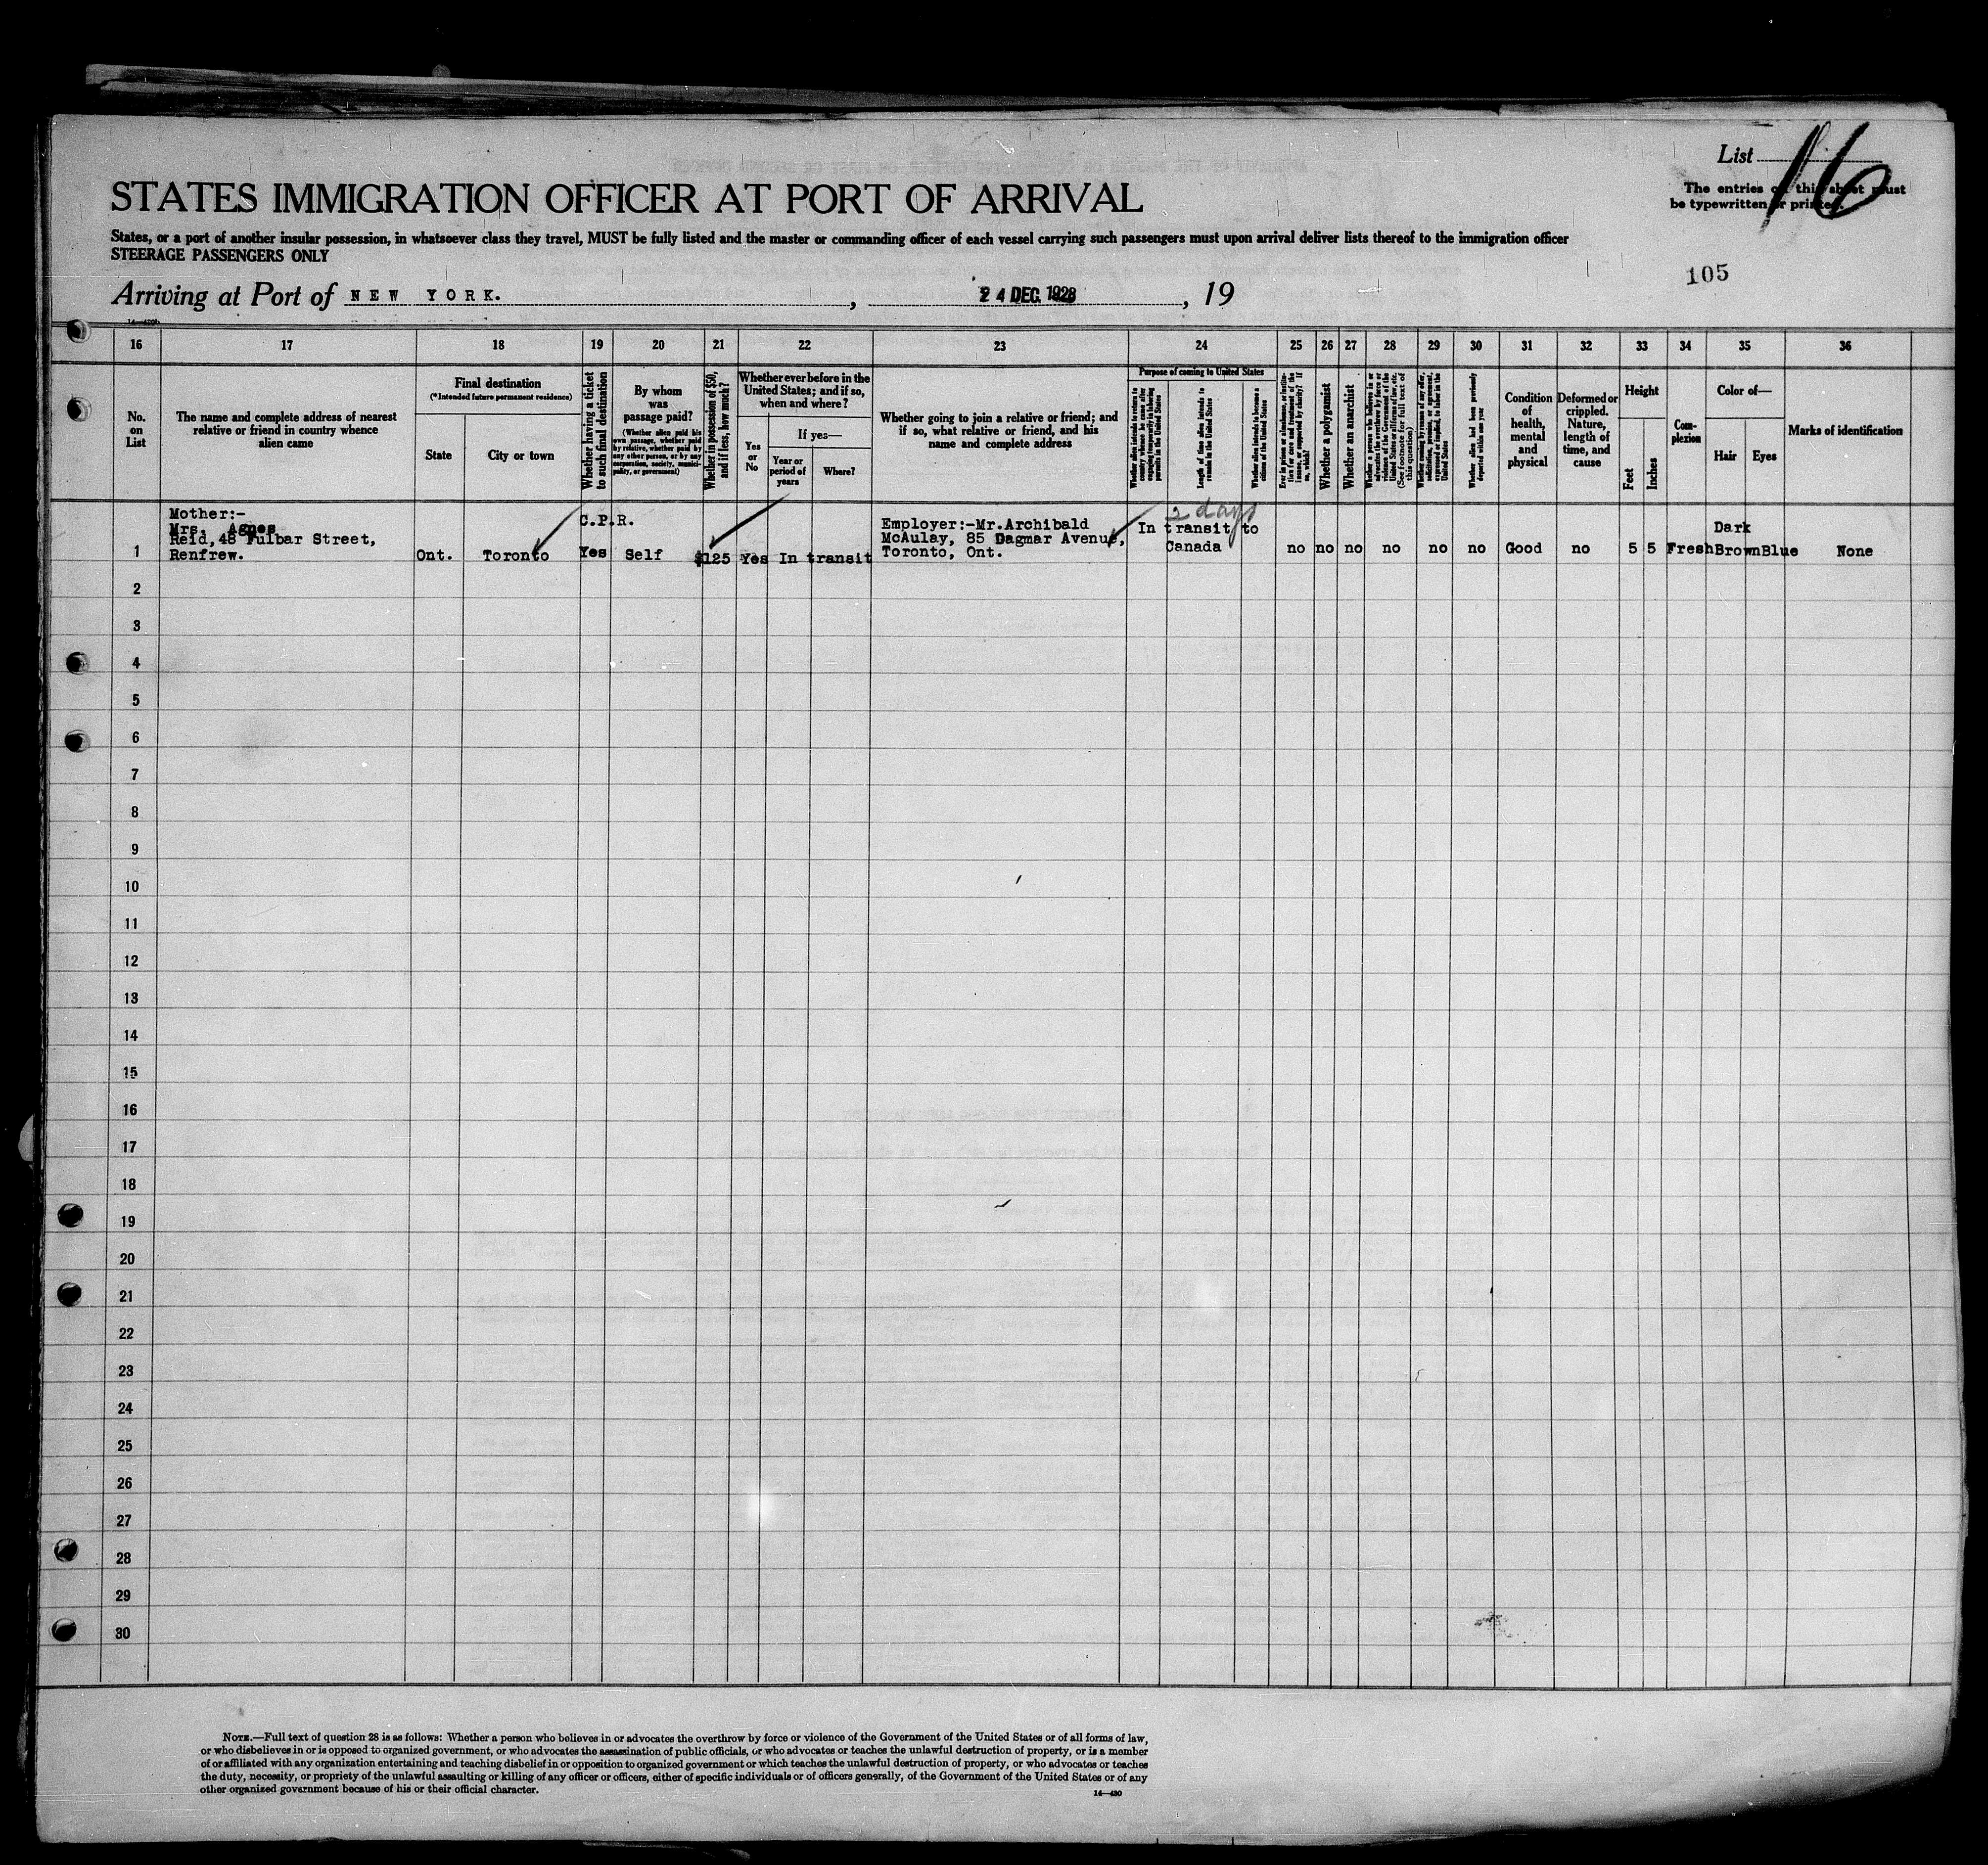 List 16
The entries on this sheet must
be typewritten or printed.
STATES IMMIGRATION OFFICER AT PORT OF ARRIVAL
States, or a port of another insular possession, in whatsoever class they travel, MUST be fully listed and the master or commanding officer of each vessel carrying such passengers must upon arrival deliver lists thereof to the immigration officer
STEERAGE PASSENGERS ONLY
105
Arriving at Port of NEW YORK. , 24 DEC. 1928 , 19
16 17 18 19 20 21 22 23 24 25 26 27 28 29 30 31 32 33 34 35 36
No.
on
List
The name and complete address of nearest
relative or friend in country whence
alien came
Final destination
(*Intended future permanent residence)
State
City or town
Whether having a ticket
to such final destination
By whom
was
passage paid?
(Whether alien paid his
own passage, whether paid
by relative, whether paid by
any other person, or by any
corporation, society, munici-
pality, or government)
Whether in possession of $50,
and if less, how much?
Whether ever before in the
United States; and if so,
when and where?
Yes
or
No
If yes—
Year or
period of
years
Where?
Whether going to join a relative or friend; and
if so, what relative or friend, and his
name and complete address
Purpose of coming to United States
Whether alien intends to return to
country whence he came after
engaging temporarily in laboring
pursuits in the United States
Length of time alien intends to
remain in the United States
Whether alien intends to become a
citizen of the United States
Ever in prison or almshouse, or institu-
tion for care and treatment of the
insane, or supported by charity? If
so, which?
Whether a polygamist
Whether an anarchist
Whether a person who believes in or
advocates the overthrow by force or
violence of the Government of the
United States or all forms of law, etc.
(See footnote for full text of
this question)
Whether coming by reason of any offer,
solicitation, promise, or agreement,
expressed or implied, to labor in the
United States
Whether alien had been previously
deported within one year
Condition
of
health,
mental
and
physical
Deformed or
crippled.
Nature,
length of
time, and
cause
Height
Feet
Inches
Com-
plexion
Color of—
Hair
Eyes
Marks of identification
Mother:-
Mrs. Agnes
Reid, 48 Fulbar Street,
Renfrew.
1
Ont.
Toronto
C.P.R.
Yes
Self
$125
Yes In transit
Employer:-Mr.Archibald
McAulay, 85 Dagmar Avenue,
Toronto, Ont.
2 days
In transit to
Canada
no no no no no no Good no 5 5 Fresh
Dark
Brown Blue
None
2
3
4
5
6
7
8
9
10
11
12
13
14
15
16
17
18
19
20
21
22
23
24
25
26
27
28
29
30
NOTE.—Full text of question 28 is as follows: Whether a person who believes in or advocates the overthrow by force or violence of the Government of the United States or of all forms of law,
or who disbelieves in or is opposed to organized government, or who advocates the assassination of public officials, or who advocates or teaches the unlawful destruction of property, or is a member
of or affiliated with any organization entertaining and teaching disbelief in or opposition to organized government or which teaches the unlawful destruction of property, or who advocates or teaches
the duty, necessity, or propriety of the unlawful assaulting or killing of any officer or officers, either of specific individuals or of officers generally, of the Government of the United States or of any
other organized government because of his or their official character.
14—420